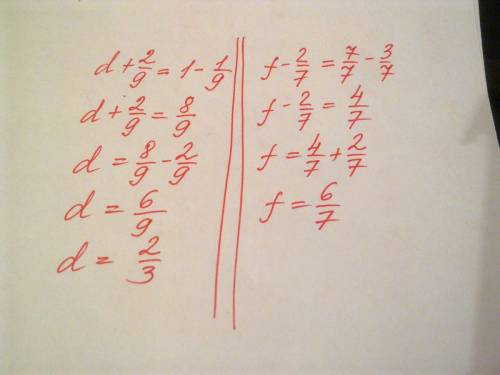 d + 2/9 = 1 - 1/9
d + 2/9 = 8/9
d = 8/9 - 2/9
d = 6/9
d = 2/3
f - 2/7 = 7/7 - 3/7
f - 2/7 = 4/7
f = 4/7 + 2/7
f = 6/7